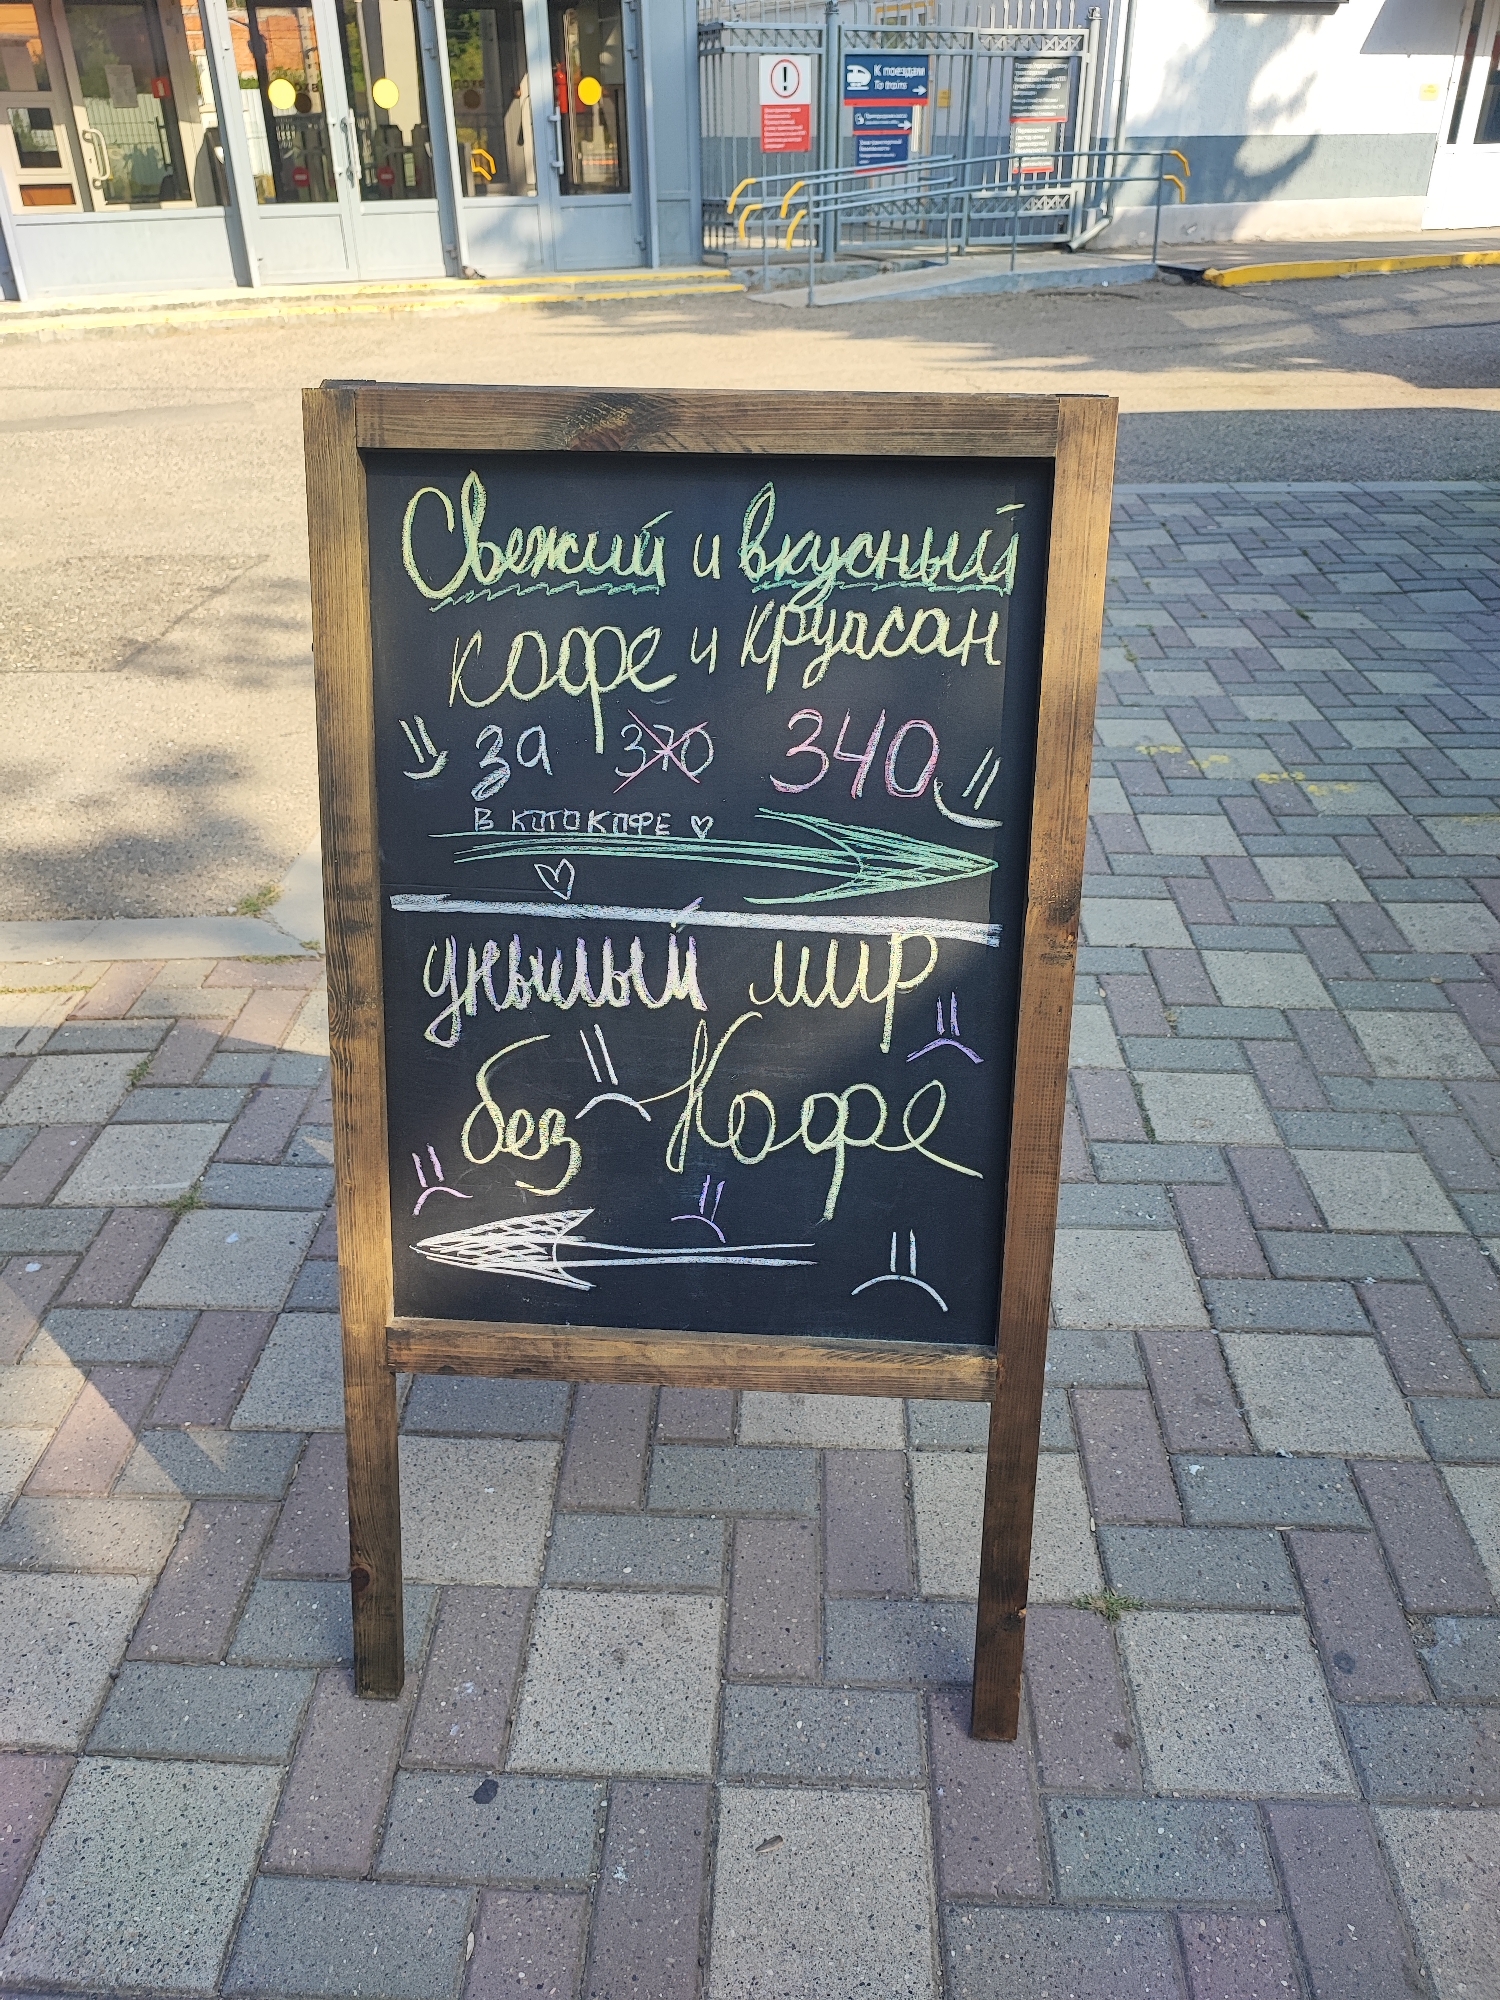 К поездам
To trains
Свежий и вкусный
кофе и круасан
за 370 340
В КОТОКОФЕ
унылый мир
без Кофе